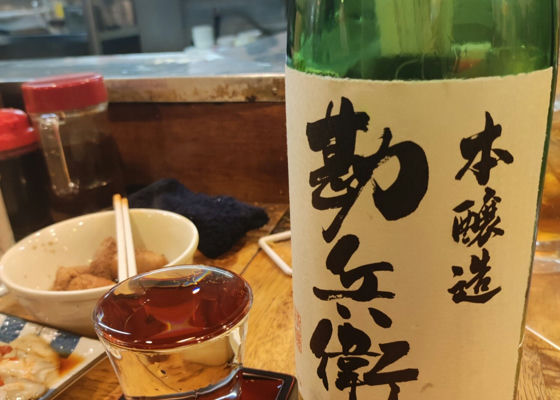 本醸造
勘兵衛